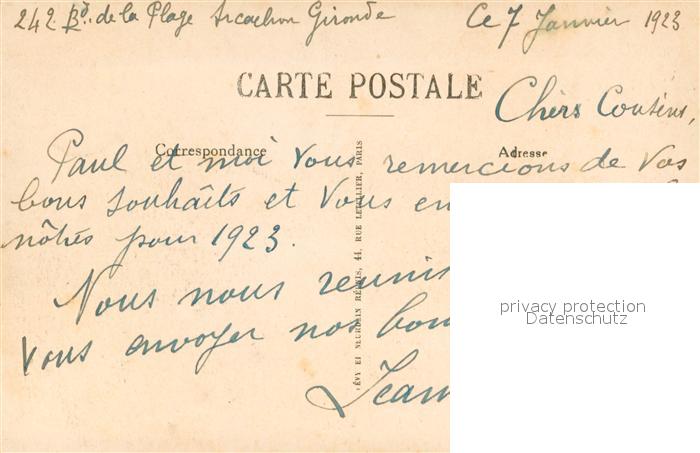 242 Bd. de la Plage Arcachon Gironde
Ce 7 Janvier 1923
CARTE POSTALE
Chers Cousins,
Correspondance
Adresse
Paul et moi vous remercions de vos
bons souhaits et vous en
nôtres pour 1923.
Nous nous reunis
vous envoyer nos bon
Jean
LÉVY ET NEURDEIN RÉUNIS, 44, RUE LETELLIER, PARIS
privacy protection
Datenschutz